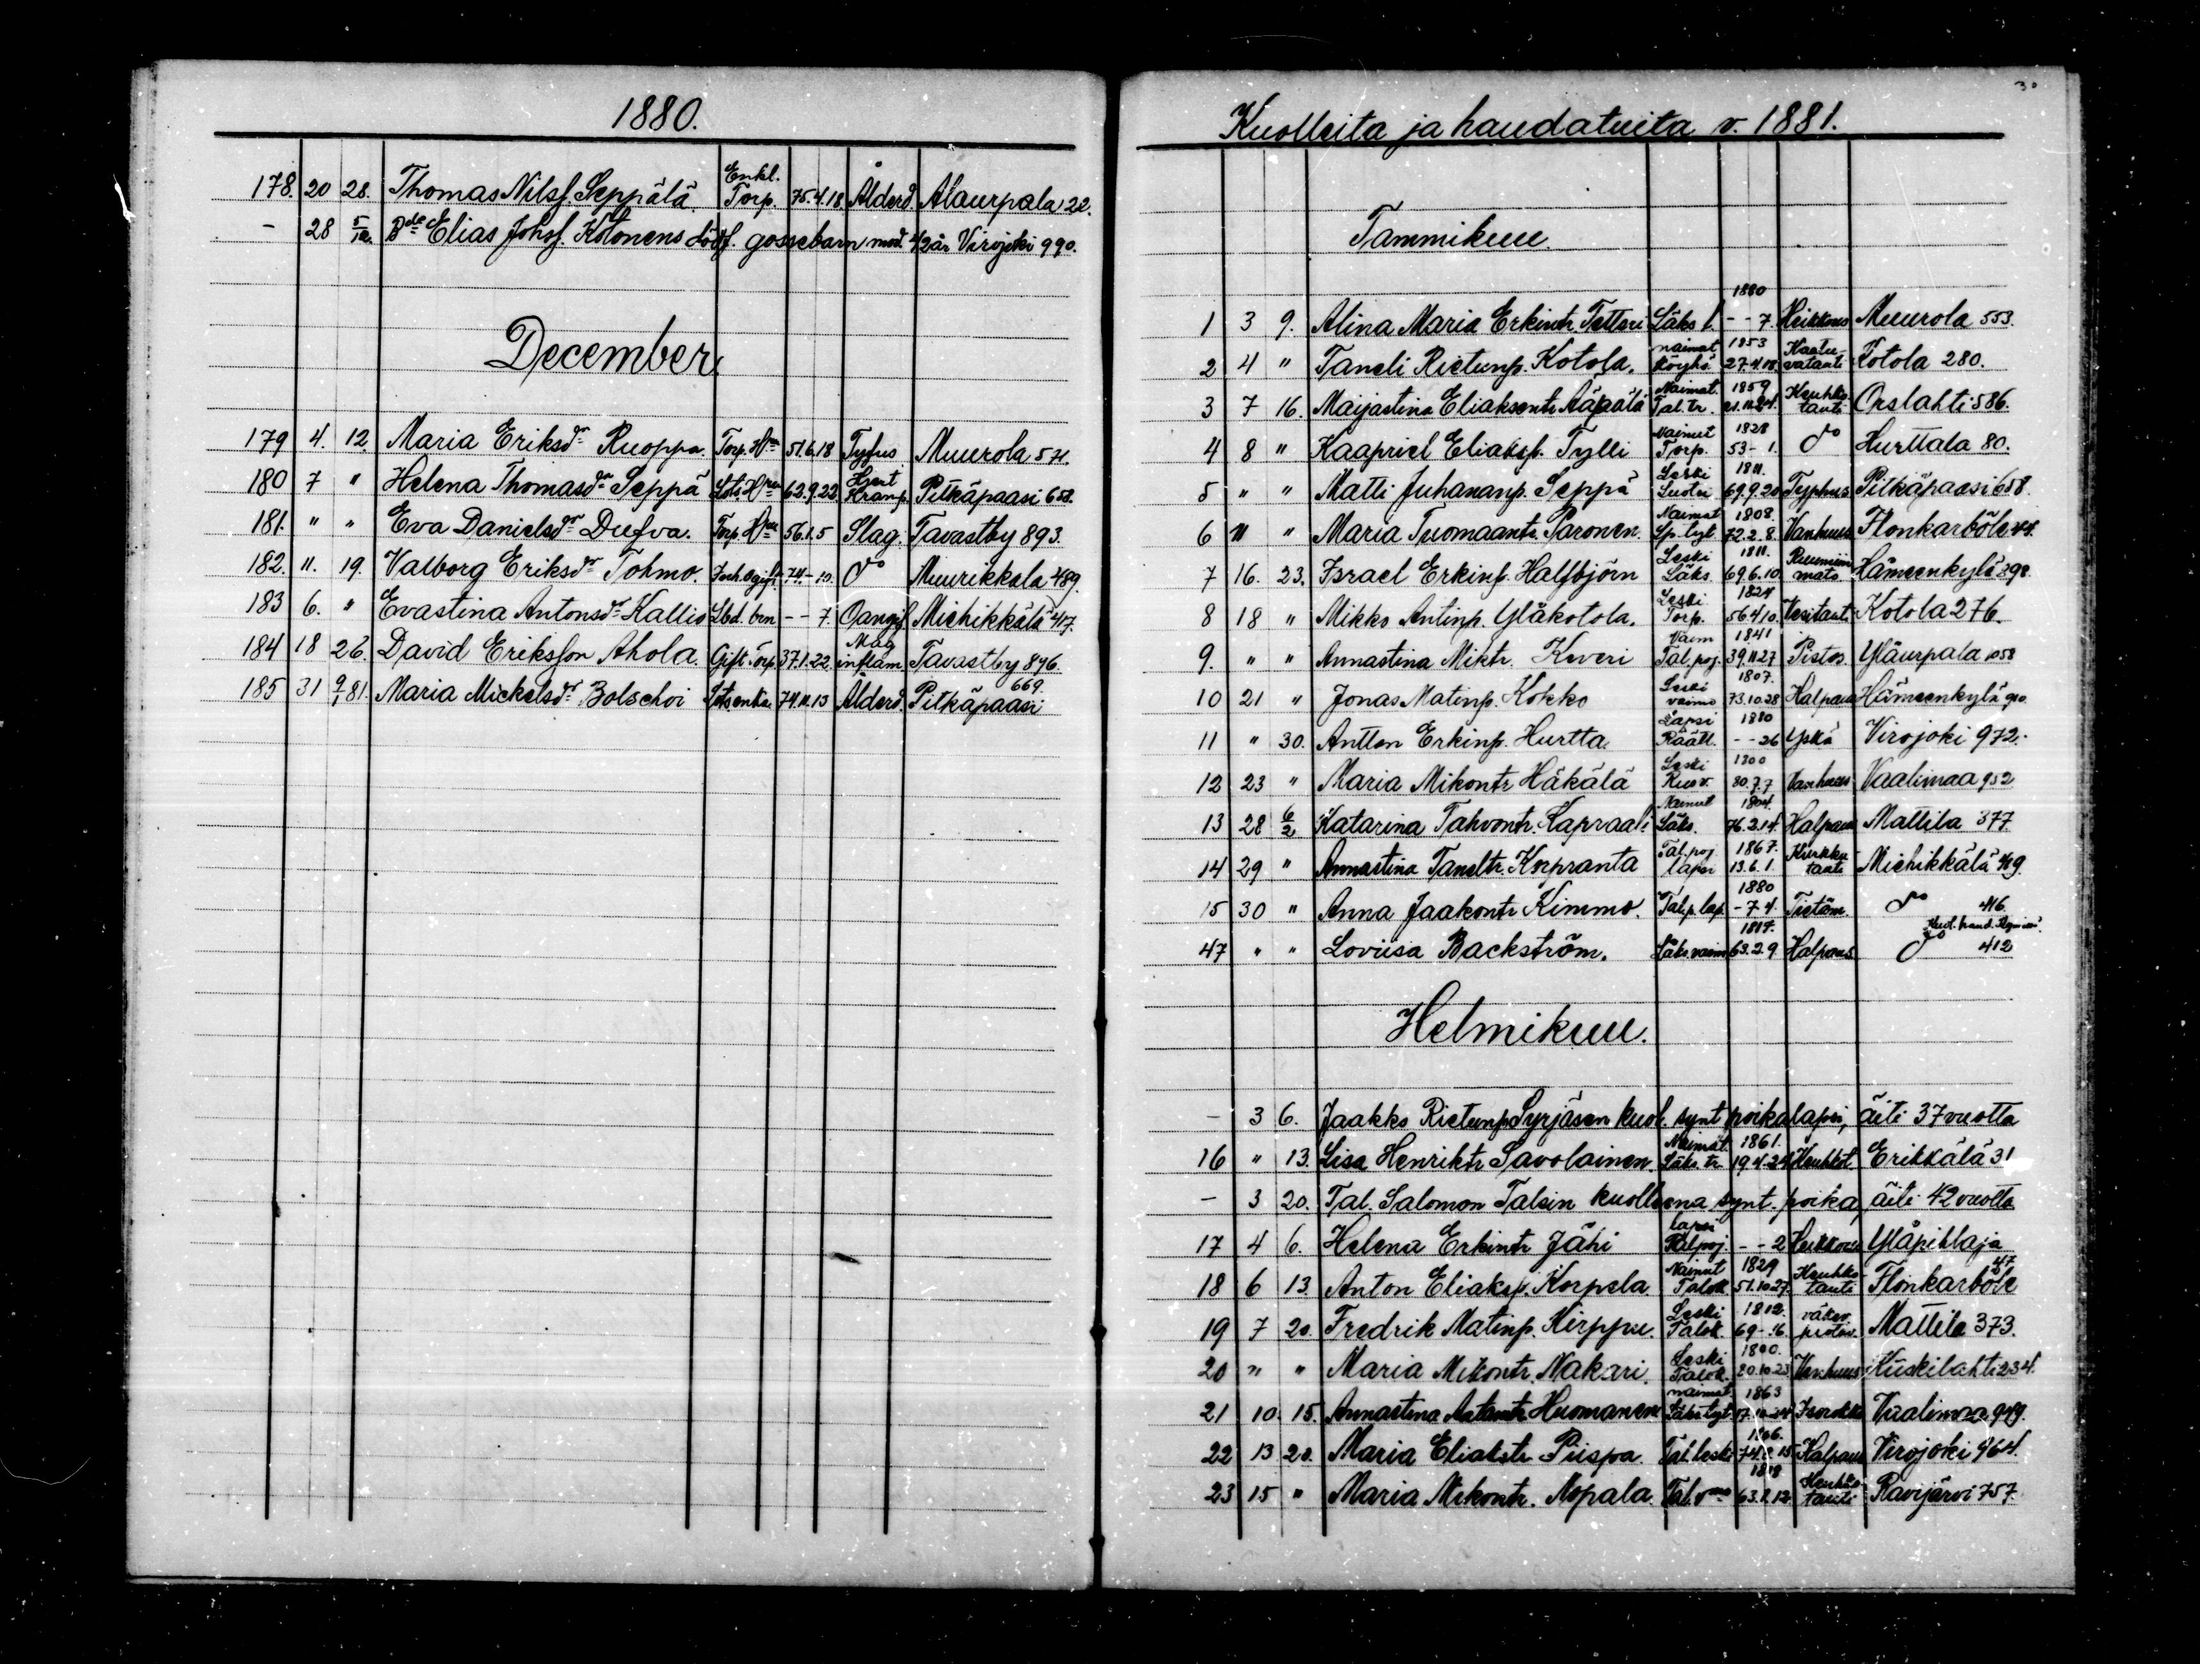 1880.
178. 20 28. Thomas Nilss. Seppälä. Enkl. Torp. 75.4.18. Ålderd. Alaurpala 22.
- 28 5/12. Bde Elias Johss. Kotonens dödf. gossebarn mod. 42 år Virojoki 990.
December.
179 4. 12. Maria Eriksdr Ruoppa. Torp. Hru 51.6.18 Tyfus Muurola 571.
180 7 " Helena Thomasdr Seppä Lots Hru 62.9.22 Hjert Kramp. Pitkäpaasi 658.
181. " " Eva Danielsdr Dufva. Torp Hru 56.1.5 Slag. Tavastby 893.
182. 11. 19. Valborg Eriksdr Tohmo. Inh. Ogift 74.-10. do Muurikkala 489.
183 6. " Evastina Antonsdr Kallio Lbd. brn - - 7. Oangif. Miehikkälä 417.
184 18 26. David Eriksson Ahola. Gift Torp. 37.1.22. Mag inflam Tavastby 896.
185 31 9/1 81. Maria Mickelsdr Bolschoi Lots enka 74.11.13 Ålderd. Pitkäpaasi 669.
Kuolleita ja haudatuita v. 1881.
Tammikuu
1 3 9. Alina Maria Erkintr. Tetteri Läks l 1880 - - 7. Heikkous Muurola 553.
2 4 " Taneli Rietunp. Kotola. naimat köyhä 1853 27.4.18. Kaatuvatauti Kotola 280.
3 7 16. Maijastina Eliaksentr Ääpälä Naimat. Tal. tr. 1859 21.11.24. Keuhkotauti Orslahti 586.
4 8 " Kaapriel Eliaksp. Tylli Naimut Torp. 1828 53 - 1. do Hurttala 80.
5 " " Matti Juhananp. Seppä Leski Luotsi 1811. 69.9.20 Typhus Pitkäpaasi 658.
6 11 " Maria Tuomaantr. Paronen. Naimat Sp. tyt 1808. 72.2.8. Vanhuus Flonkarböle
7 16. 23. Israel Erkinp. Halfbjörn Leski Läks. 1811. 69.6.10. Hämeenkylä 398.
8 18 " Mikko Antinp. Yläkotola. Leski Torp. 1824 56.4.10. Vesitauti Kotola 276.
9. " " Annastina Miktr. Keveri Vaim Tal. poj. 1841 39.11.27 Pistos Yläurpala 1058
10 21 " Jonas Matinp. Kokko Leski vaimo 1807. 73.10.28 Halpaus Hämeenkylä 910.
11 " 30. Antton Erkinp. Hurtta. Lapsi Räätl. 1880 - - 26 Yskä Virojoki 972.
12 23 " Maria Mikontr Häkälä Leski Ruov. 1800 80.7.7 Vanhuus Vaalimaa 952
13 28 6/2 Katarina Tahvontr. Kapraali Naimut Läks. 1804. 76.2.14. Halpaus Mattila 377.
14 29 " Annastina Taneltr. Korpranta Tal. poj lapsi 1867. 13.6.1. Kurkkutauti Miehikkälä 419.
15 30 " Anna Jaakontr Kimmo. Tal. p. lap. 1880 - 7 4. Tietäm. do 416.
47 " " Loviisa Backström. Läks. vaim 1817. 63.2.9 Halpaus. do 412
Helmikuu.
- 3 6. Jaakko Rietunp Syrjäsen kuol. synt poikalapsi, äiti 37 vuotta
16 " 13. Lisa Henriktr Savolainen. Naimat. Läks. tr. 1861. 19.4.24 Keuhkot. Erikkälä 31
- 3 20. Tal. Salomon Talsin kuolleena synt. poika, äiti 42 vuotta
17 4 6. Helena Erkintr Jähi lapsi Tal poj - - 2 Heikkous Yläpihlaja
18 6 13. Anton Eliaksp. Korpela Naimut Talok 1829 51.10.27. Keuhkotauti Flonkarböle 47
19 7 20. Fredrik Matinp. Kirppu. Leski Talok. 1812. 69 - 16. Mattila 373.
20 " " Maria Mikontr. Nakari. Leski Talok. 1800. 80.10.23 Vanhuus Kiiskilahti 234.
21 10. 15. Annastina Huomanen naimat. Läks tyt 1863 Isorokko Vaalimaa 949.
22 13 20. Maria Eliakstr Piispa Tal. leski 1806. Halpaus Virojoki 964.
23 15 " Maria Mikontr. Nopala. Tal. vmo 1818 63.1.12 Keuhkotauti Ravijärvi 757.